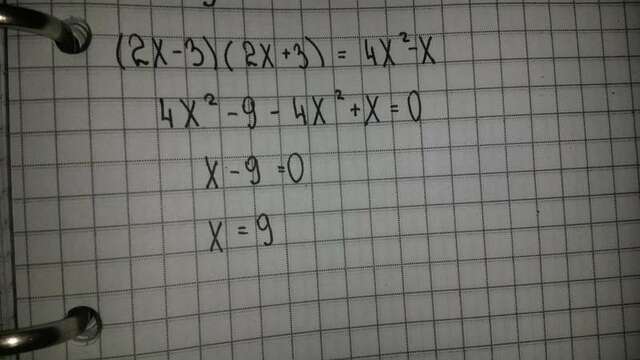 (2x-3)(2x+3) = 4x²-x
4x² - 9 - 4x² + x = 0
x - 9 = 0
x = 9